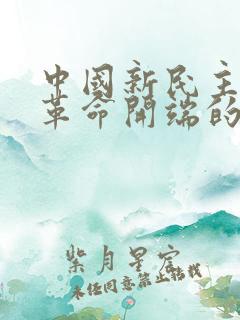 中國新民主
革命開端的
紫月星宿
未经同意禁止搭载